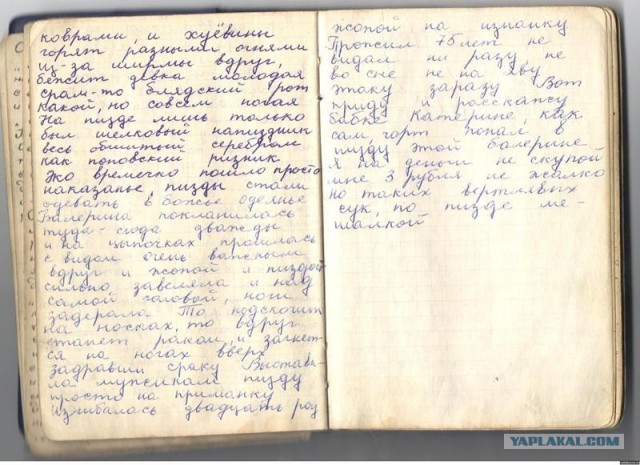 коврами, и хуёвины
горят разными огнями
из-за ширмы вдруг,
бежит девка молодая
срам-то блядский рот
какой, но совсем погая
На пизде лишь только
был шелковый напиздник
весь обшитый серебром
как поповский ризник
Эко времечко пошло просто
наказанье, пизды стали
одевать в божье одеянье
Балерина поклонилась
туда-сюда дважды
и на цыпочках прошлась
с видом очень важным
вдруг и жопой и пиздой
сильно завеляла и над
самой головой, ноги
задерала То подскочит
на носках, то вдруг
станет раком, и
ся на ногах вверх
задравши сраку Выстави-
ла мужикам пизду
просто на приманку
изгибалась двадцать раз
жопой на изнанку
Прожил 75 лет не
видал ни разу не
во сне не на яву
этаку заразу Вот
приду и расскажу
бабке Катерине, как
сам чорт попал в
пизду этой балерине
Я на деньги не скупой
мне 3 рубля не жалко
но таких вертлявых
сук, по пизде ме-
шалкой
YAPLAKAL.COM